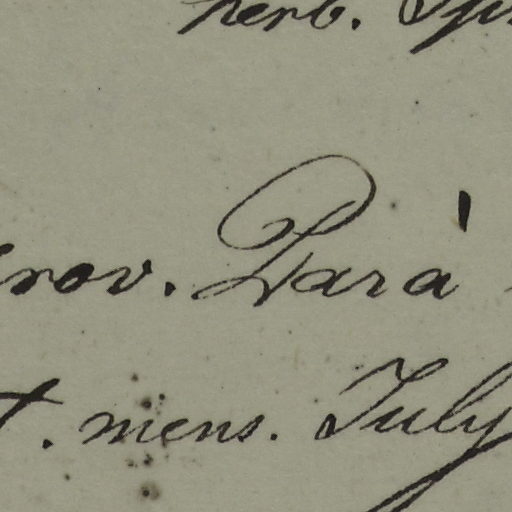 herb.
rov. Parà
t. mens. July